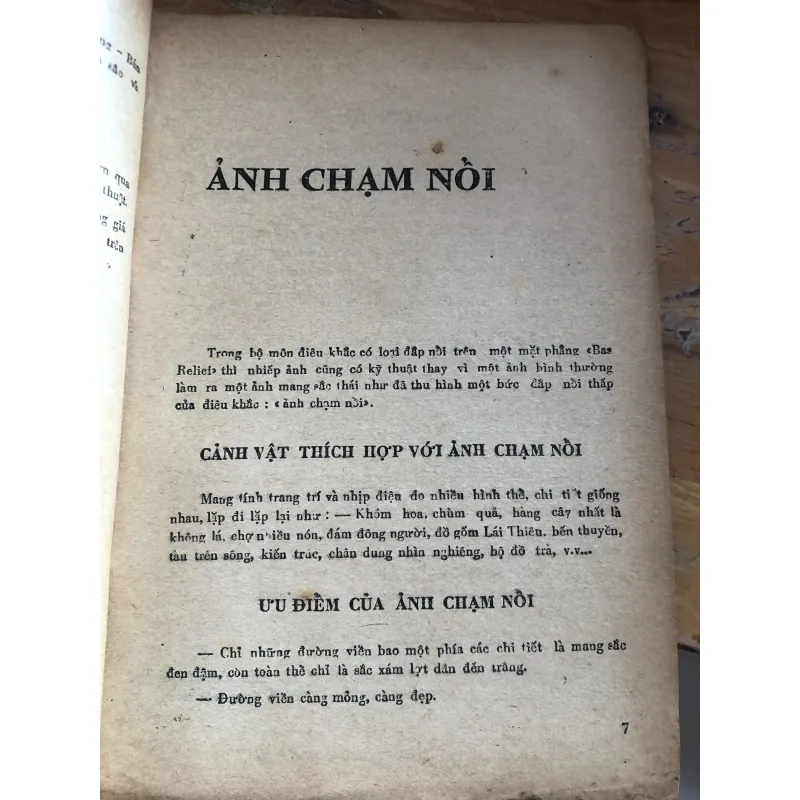 ng – Bán
sắc và
qua
thuật.
giá
trên
ẢNH CHẠM NỔI
Trong bộ môn điêu khắc có loại đắp nồi trên một mặt phẳng «Bas
Relief» thì nhiếp ảnh cũng có kỹ thuật thay vì một ảnh bình thường
làm ra một ảnh mang sắc thái như đã thu hình một bức đắp nồi thấp
của điêu khắc : «ảnh chạm nồi».
CẢNH VẬT THÍCH HỢP VỚI ẢNH CHẠM NỒI
Mang tính trang trí và nhịp điệu do nhiều hình thề, chi tiết giống
nhau, lặp đi lặp lại như : — Khóm hoa, chùm quả, hàng cây nhất là
không lá, chợ nhiều nón, đám đông người, đồ gốm Lái Thiêu. bến thuyền,
tàu trên sông, kiến trúc, chân dung nhìn nghiêng, bộ đồ trà, v.v...
ƯU ĐIỀM CỦA ẢNH CHẠM NỒI
— Chỉ những đường viền bao một phía các chi tiết là mang sắc
đen đậm, còn toàn thề chỉ là sắc xám lợt dần đến trắng.
— Đường viền càng mỏng, càng đẹp.
7